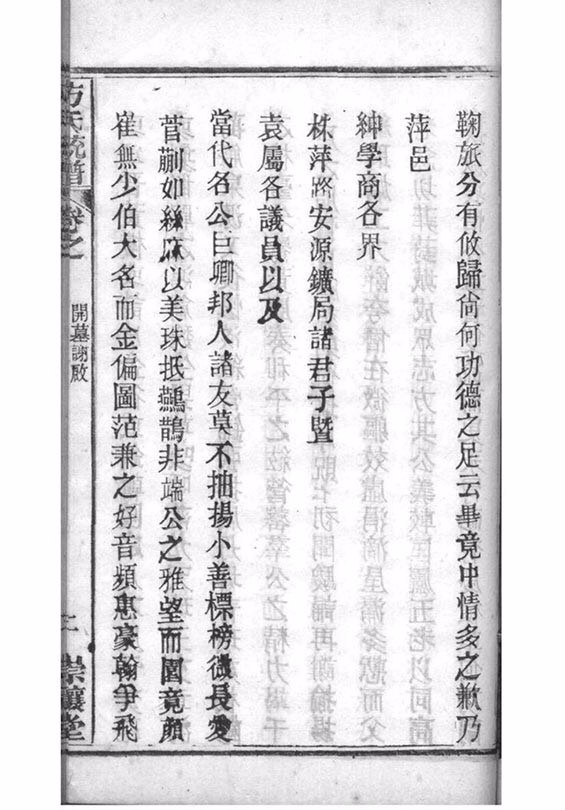 鞠旅分有攸歸尙何功德之足云畢竟中情多之歉乃
萍邑
紳學商各界
株萍路安源鑛局諸君子曁
袁屬各議員以及
當代名公巨卿邦人諸友莫不抽揚小善標榜微長愛
菅蒯如絲麻以美珠抵鵲非端公之雅望而圖竟顏
崔無少伯大名而金偏圖范兼之好音頻惠豪翰爭飛
方氏統譜
卷之
開墓謝啟
二
崇讓堂